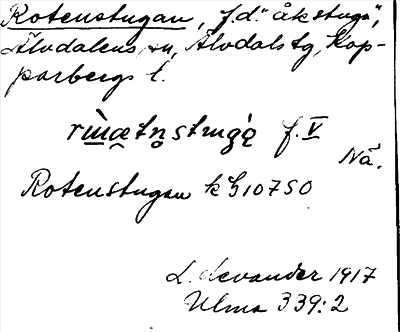 Rotenstugan, f.d. "åkstuga",
Älvdalens sn, Älvdals tg, Kop-
parbergs l.
f. V
Nä.
Rotenstugan k Ä10750
L. Levander 1917
Ulma 339:2